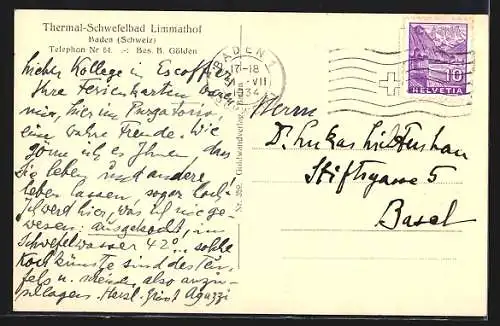 Thermal-Schwefelbad Limmathof
Baden (Schweiz)
Telephon Nr 64. — Bes. B. Gölden
Lieber Kollege in Escoffier
Ihre Ferienkarten waren
mir, hier im Purgatorio,
eine wahre Freude. Wie
gönne ich es Ihnen, dass
Sie leben und andere
leben lassen, sogar hoch!
Ich werd hier, was ich nie ge-
wesen: ausgekocht, im
Schwefelwasser 42° .. solche
Kochkünste sind des Teu-
fels u. also
Herzl.
BADEN 1
17-18
VII
1934
HELVETIA
10
Herrn
Dr. Lukas Lichtenhan
Stiftsgasse 5
Basel